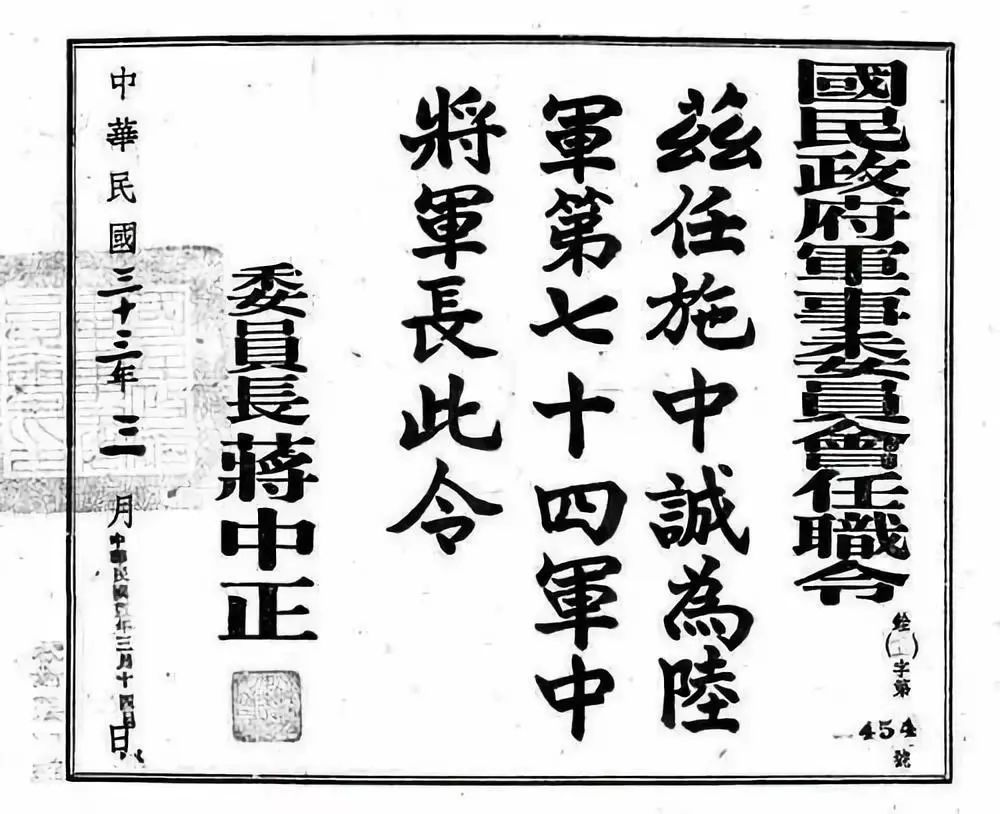 國民政府軍事委員會任職令
銓()字第
454
號
茲任施中誠為陸
軍第七十四軍中
將軍長此令
委員長蔣中正
中華民國三十三年三月日
中華民國年三月十四日